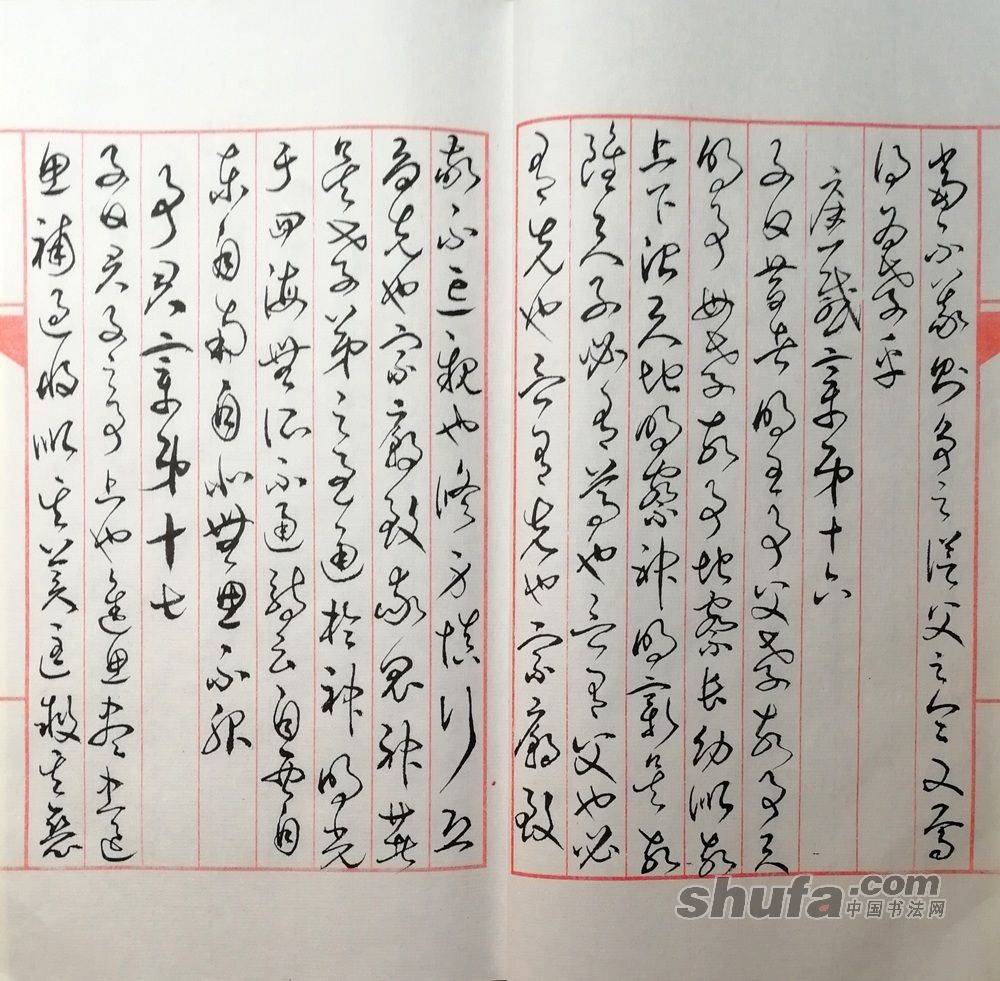 當不義則爭之從父之令又焉
得為孝乎
應感章第十六
子曰昔者明王事父孝故事天
明事母孝故事地察長幼順故
上下治天地明察神明彰矣故
雖天子必有尊也言有父也必
有先也言有兄也宗廟致
敬不忘親也修身慎行恐
辱先也宗廟致敬鬼神著
矣孝弟之至通於神明光
于四海無所不通詩云自西自
東自南自北無思不服
事君章第十七
子曰君子之事上也進思盡忠退
思補過將順其美匡救其惡
shufa.com
中国书法网